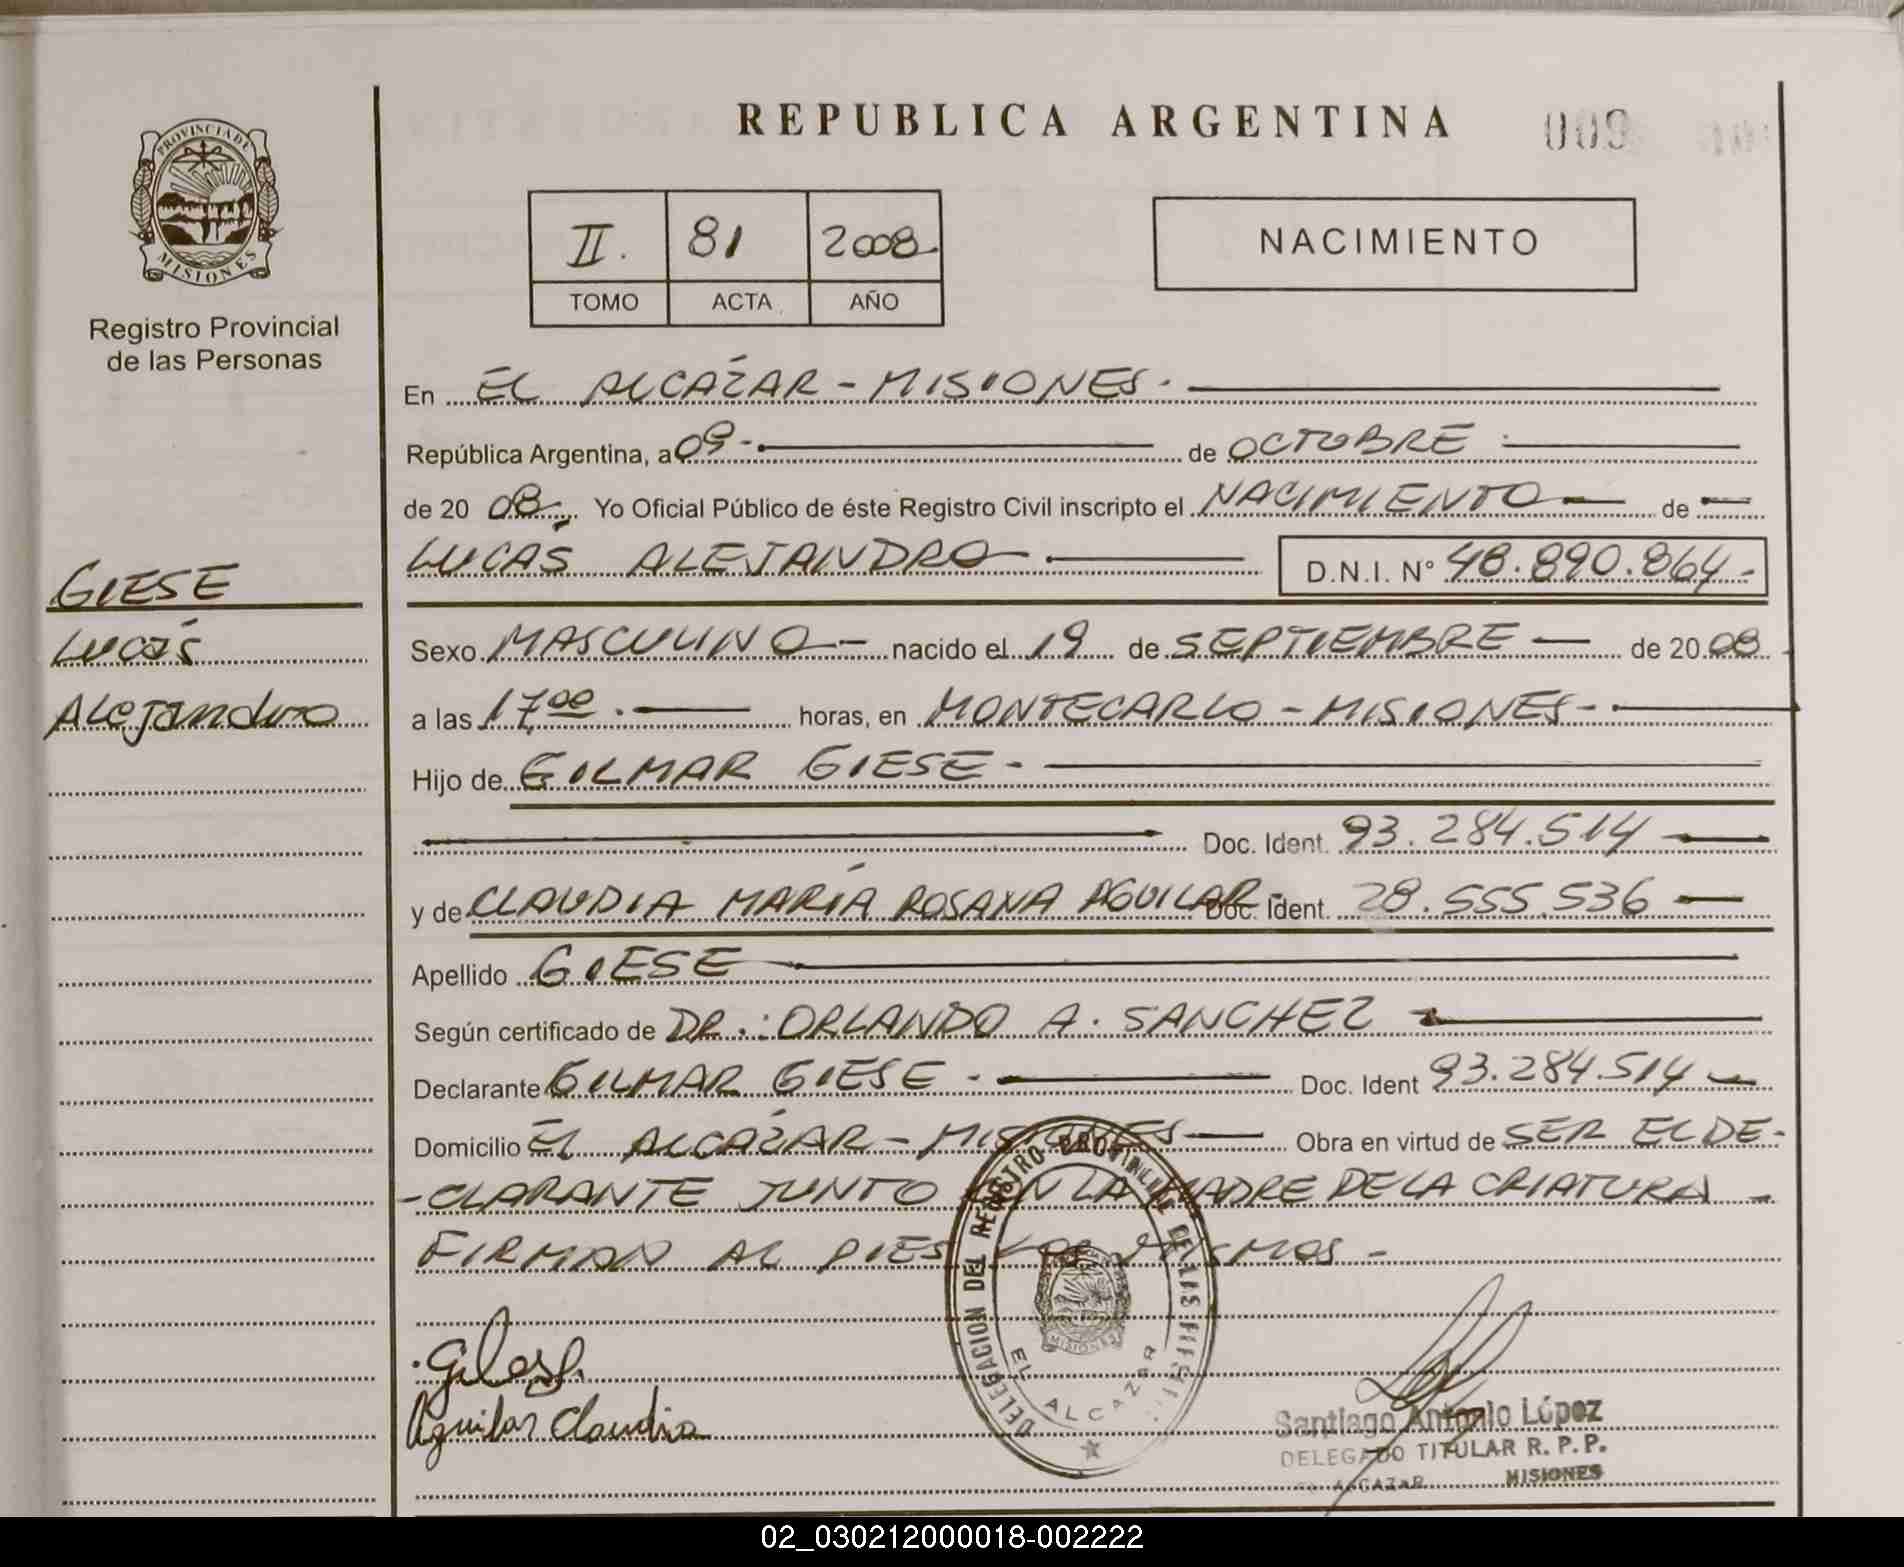 REPUBLICA ARGENTINA 009
PROVINCIA DE
MISIONES
Registro Provincial
de las Personas
II. 81 2008
TOMO ACTA AÑO
NACIMIENTO
En EL ALCAZAR - MISIONES.
República Argentina, a 09- de OCTUBRE
de 20 08. Yo Oficial Público de éste Registro Civil inscripto el NACIMIENTO de
LUCAS ALEJANDRO D.N.I. N° 48.890.864-
GIESE
LUCAS
Alejandro
Sexo MASCULINO - nacido el 19 de SEPTIEMBRE de 20 08
a las 17,00 . horas, en MONTECARLO - MISIONES -
Hijo de GILMAR GIESE -
Doc. Ident. 93.284.514
y de CLAUDIA MARÍA ROSANA AGUILAR - Doc. Ident. 28.555.536
Apellido GIESE
Según certificado de DR.: ORLANDO A. SANCHEZ
Declarante GILMAR GIESE - Doc. Ident 93.284.514
Domicilio EL ALCAZAR - MISIONES Obra en virtud de SER EL DE-
-CLARANTE JUNTO CON LA MADRE DE LA CRIATURA -
FIRMAN AL PIES LOS MISMOS -
DELEGACION DEL REGISTRO PROVINCIAL DE LAS
EL ALCAZAR
MISIONES
Aguilar Claudia
Santiago Antonio López
DELEGADO TITULAR R. P. P.
ALCAZAR MISIONES
02_030212000018-002222